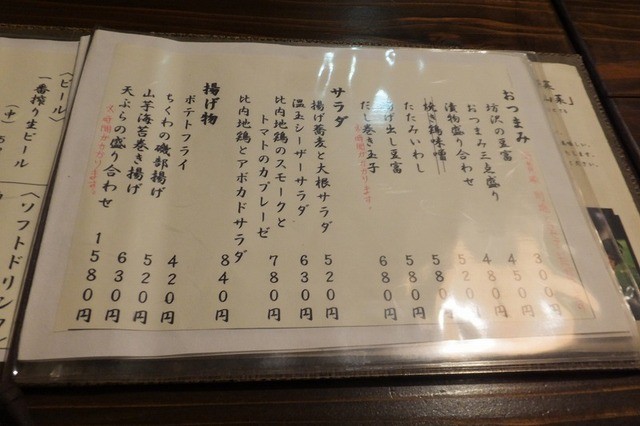 おつまみ
坊沢の豆富 300円
おつまみ三点盛り 450円
漬物盛り合わせ 480円
焼き鶏味噌 520円
たたみいわし 580円
揚げ出し豆富 580円
だし巻き玉子 680円
※時間がかかります。
サラダ
揚げ蕎麦と大根サラダ 520円
温玉シーザーサラダ 630円
比内地鶏のスモークと
トマトのカプレーゼ 780円
比内地鶏とアボカドサラダ 840円
揚げ物
ポテトフライ 420円
ちくわの磯部揚げ 520円
山芋海苔巻き揚げ 630円
天ぷらの盛り合わせ 1580円
※時間がかかります。
〈ビール〉
一番搾り生ビール
(中)
〈ソフトドリンク